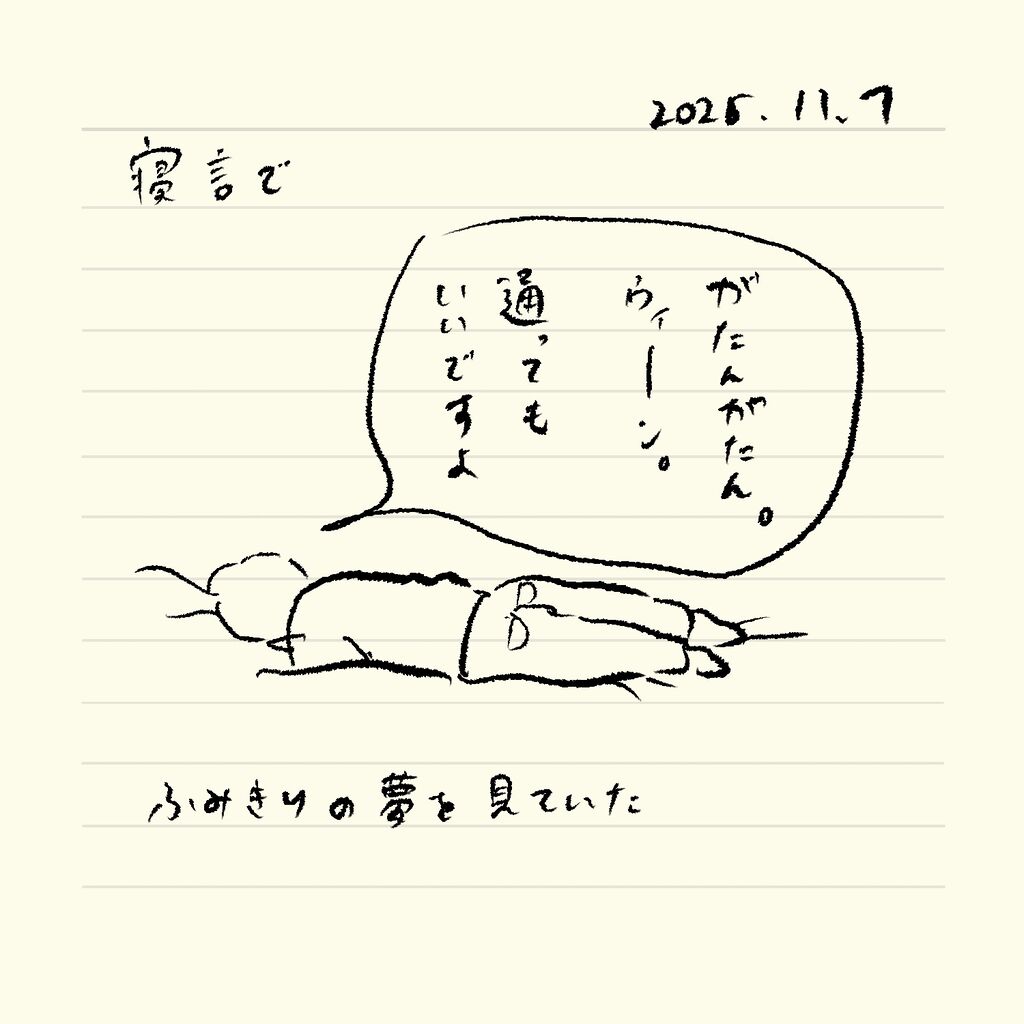 2025.11.7
寝言で
がたんがたん。
ウィーン。
通っても
いいですよ
ふみきりの夢を見ていた